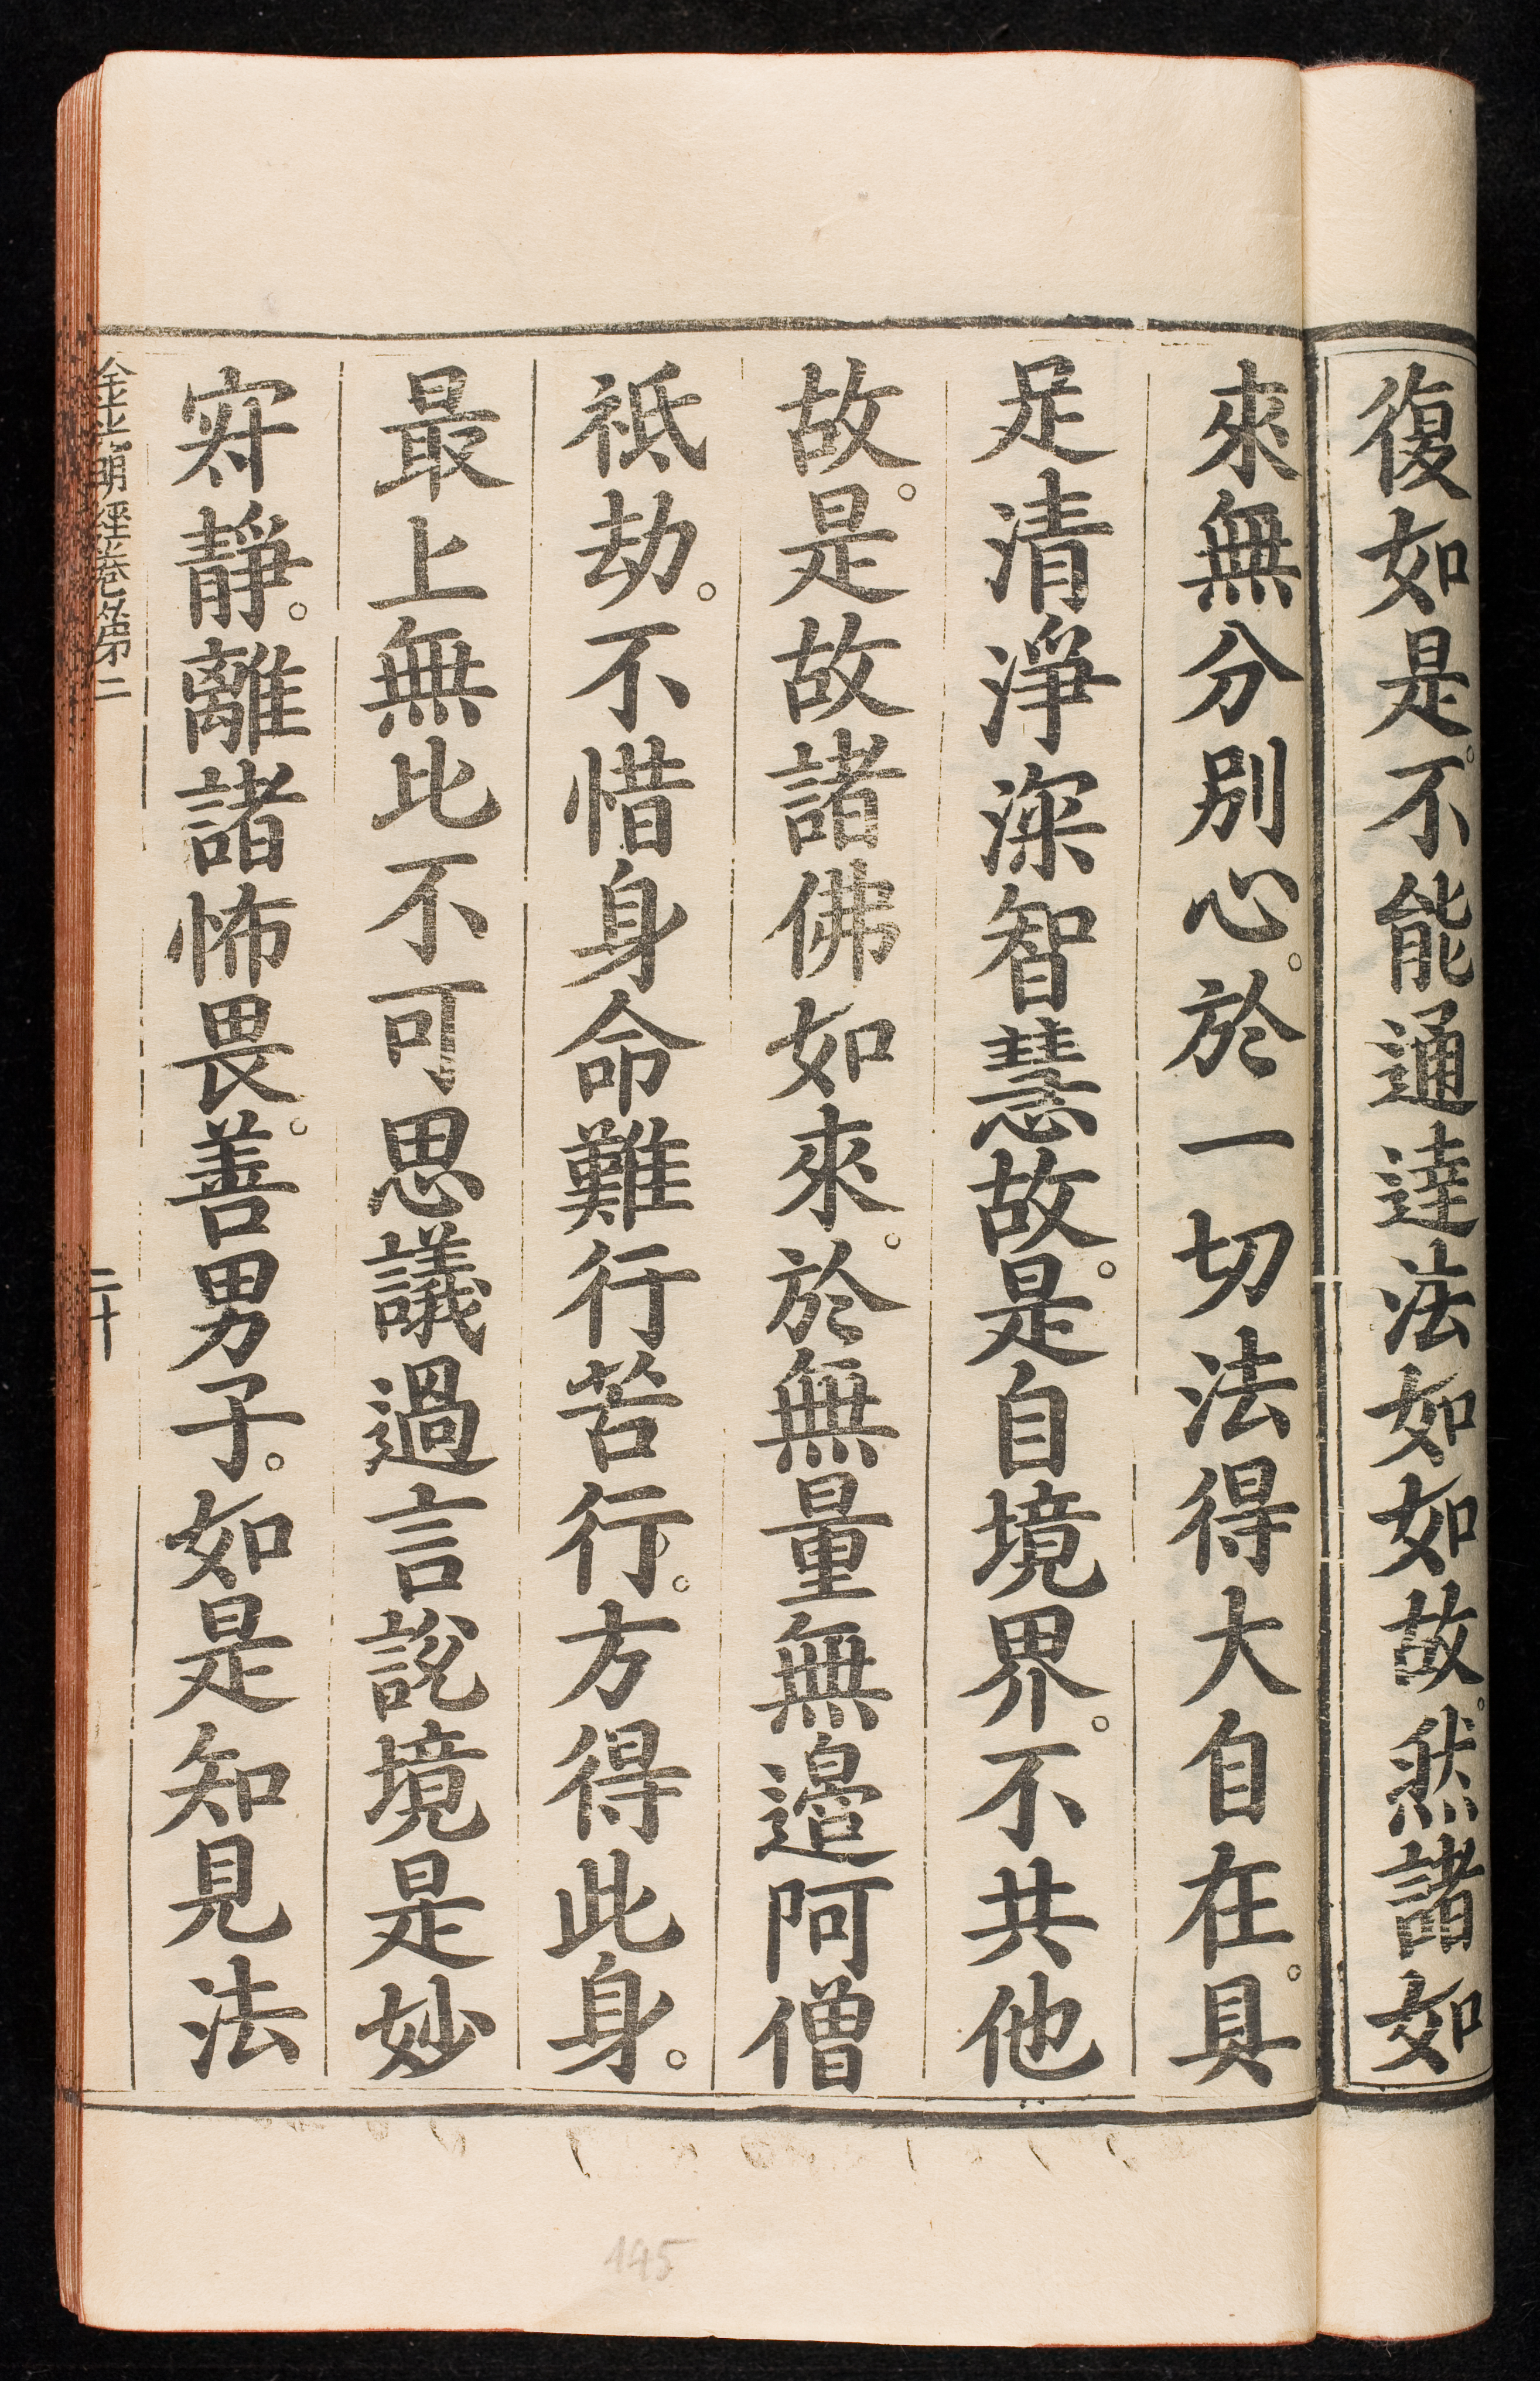 復如是。不能通達法如如故。然諸如
來無分別心。於一切法得大自在。具
足清淨深智慧故。是自境界。不共他
故。是故諸佛如來。於無量無邊阿僧
祇劫。不惜身命難行苦行。方得此身。
最上無比不可思議過言說境是妙
寂靜。離諸怖畏。善男子。如是知見法
金光明經卷第二
二十
145